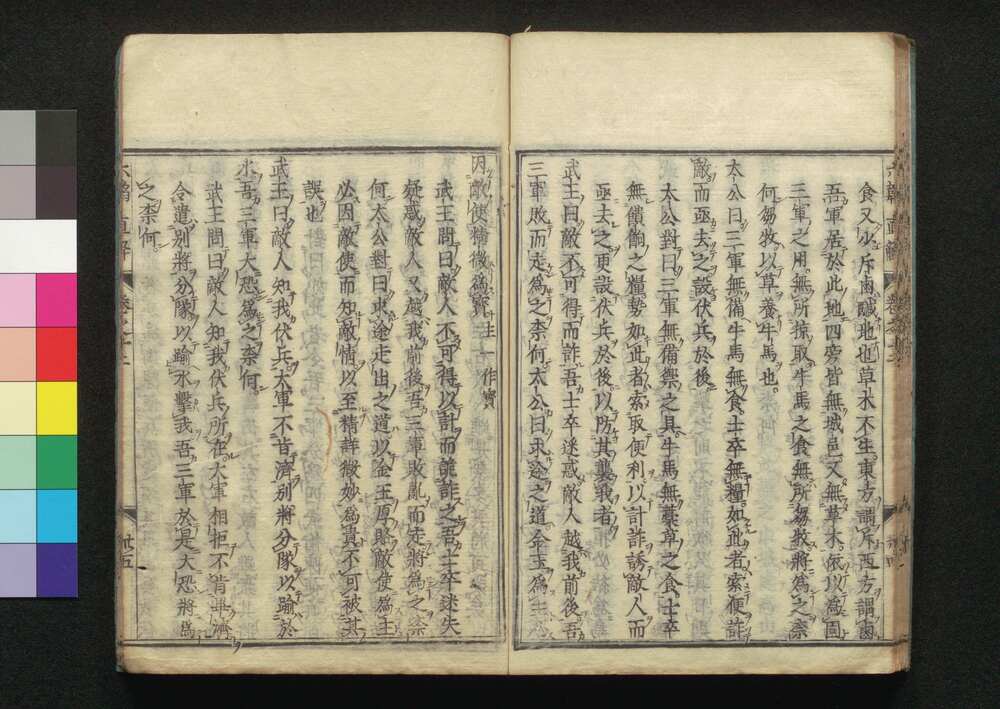 食又少斥鹵鹹地也草木不生東方謂斥西方謂鹵
吾軍居於此地四旁皆無城邑又無草木依以爲固
三軍之用無所掠取牛馬之食無所芻牧將爲之柰
何芻牧以草養牛馬也
太公曰三軍無備牛馬無食士卒無糧如此者索便詐
敵而亟去之設伏兵於後
太公對曰三軍無備禦之具牛馬無藁草之食士卒
無饋餉之糧勢如此者索取便利以計詐誘敵人而
亟去之更設伏兵於後以防其襲我者
武王曰敵不可得而詐吾士卒迷惑敵人越我前後吾
三軍敗而走爲之柰何太公曰求途之道金玉爲主
因敵使精微爲寶主一作寶
武王問曰敵人不可得以計而誰詐之吾士卒迷失
疑惑敵人又越我前後吾三軍敗亂而走將爲之柰
何太公對曰求途走出之道以金玉厚賂敵使爲主
必因敵使而知敵情以至精詳微妙爲貴不可被其
誤也
武王曰敵人知我伏兵大軍不肯濟別將分隊以踰於
水吾三軍大恐爲之柰何
武王問曰敵人知我伏兵所在大軍相拒不肯濟
令遣別將分隊以踰水擊我吾三軍於是大恐將爲
之柰何
六韜直解 卷之十三 丗五